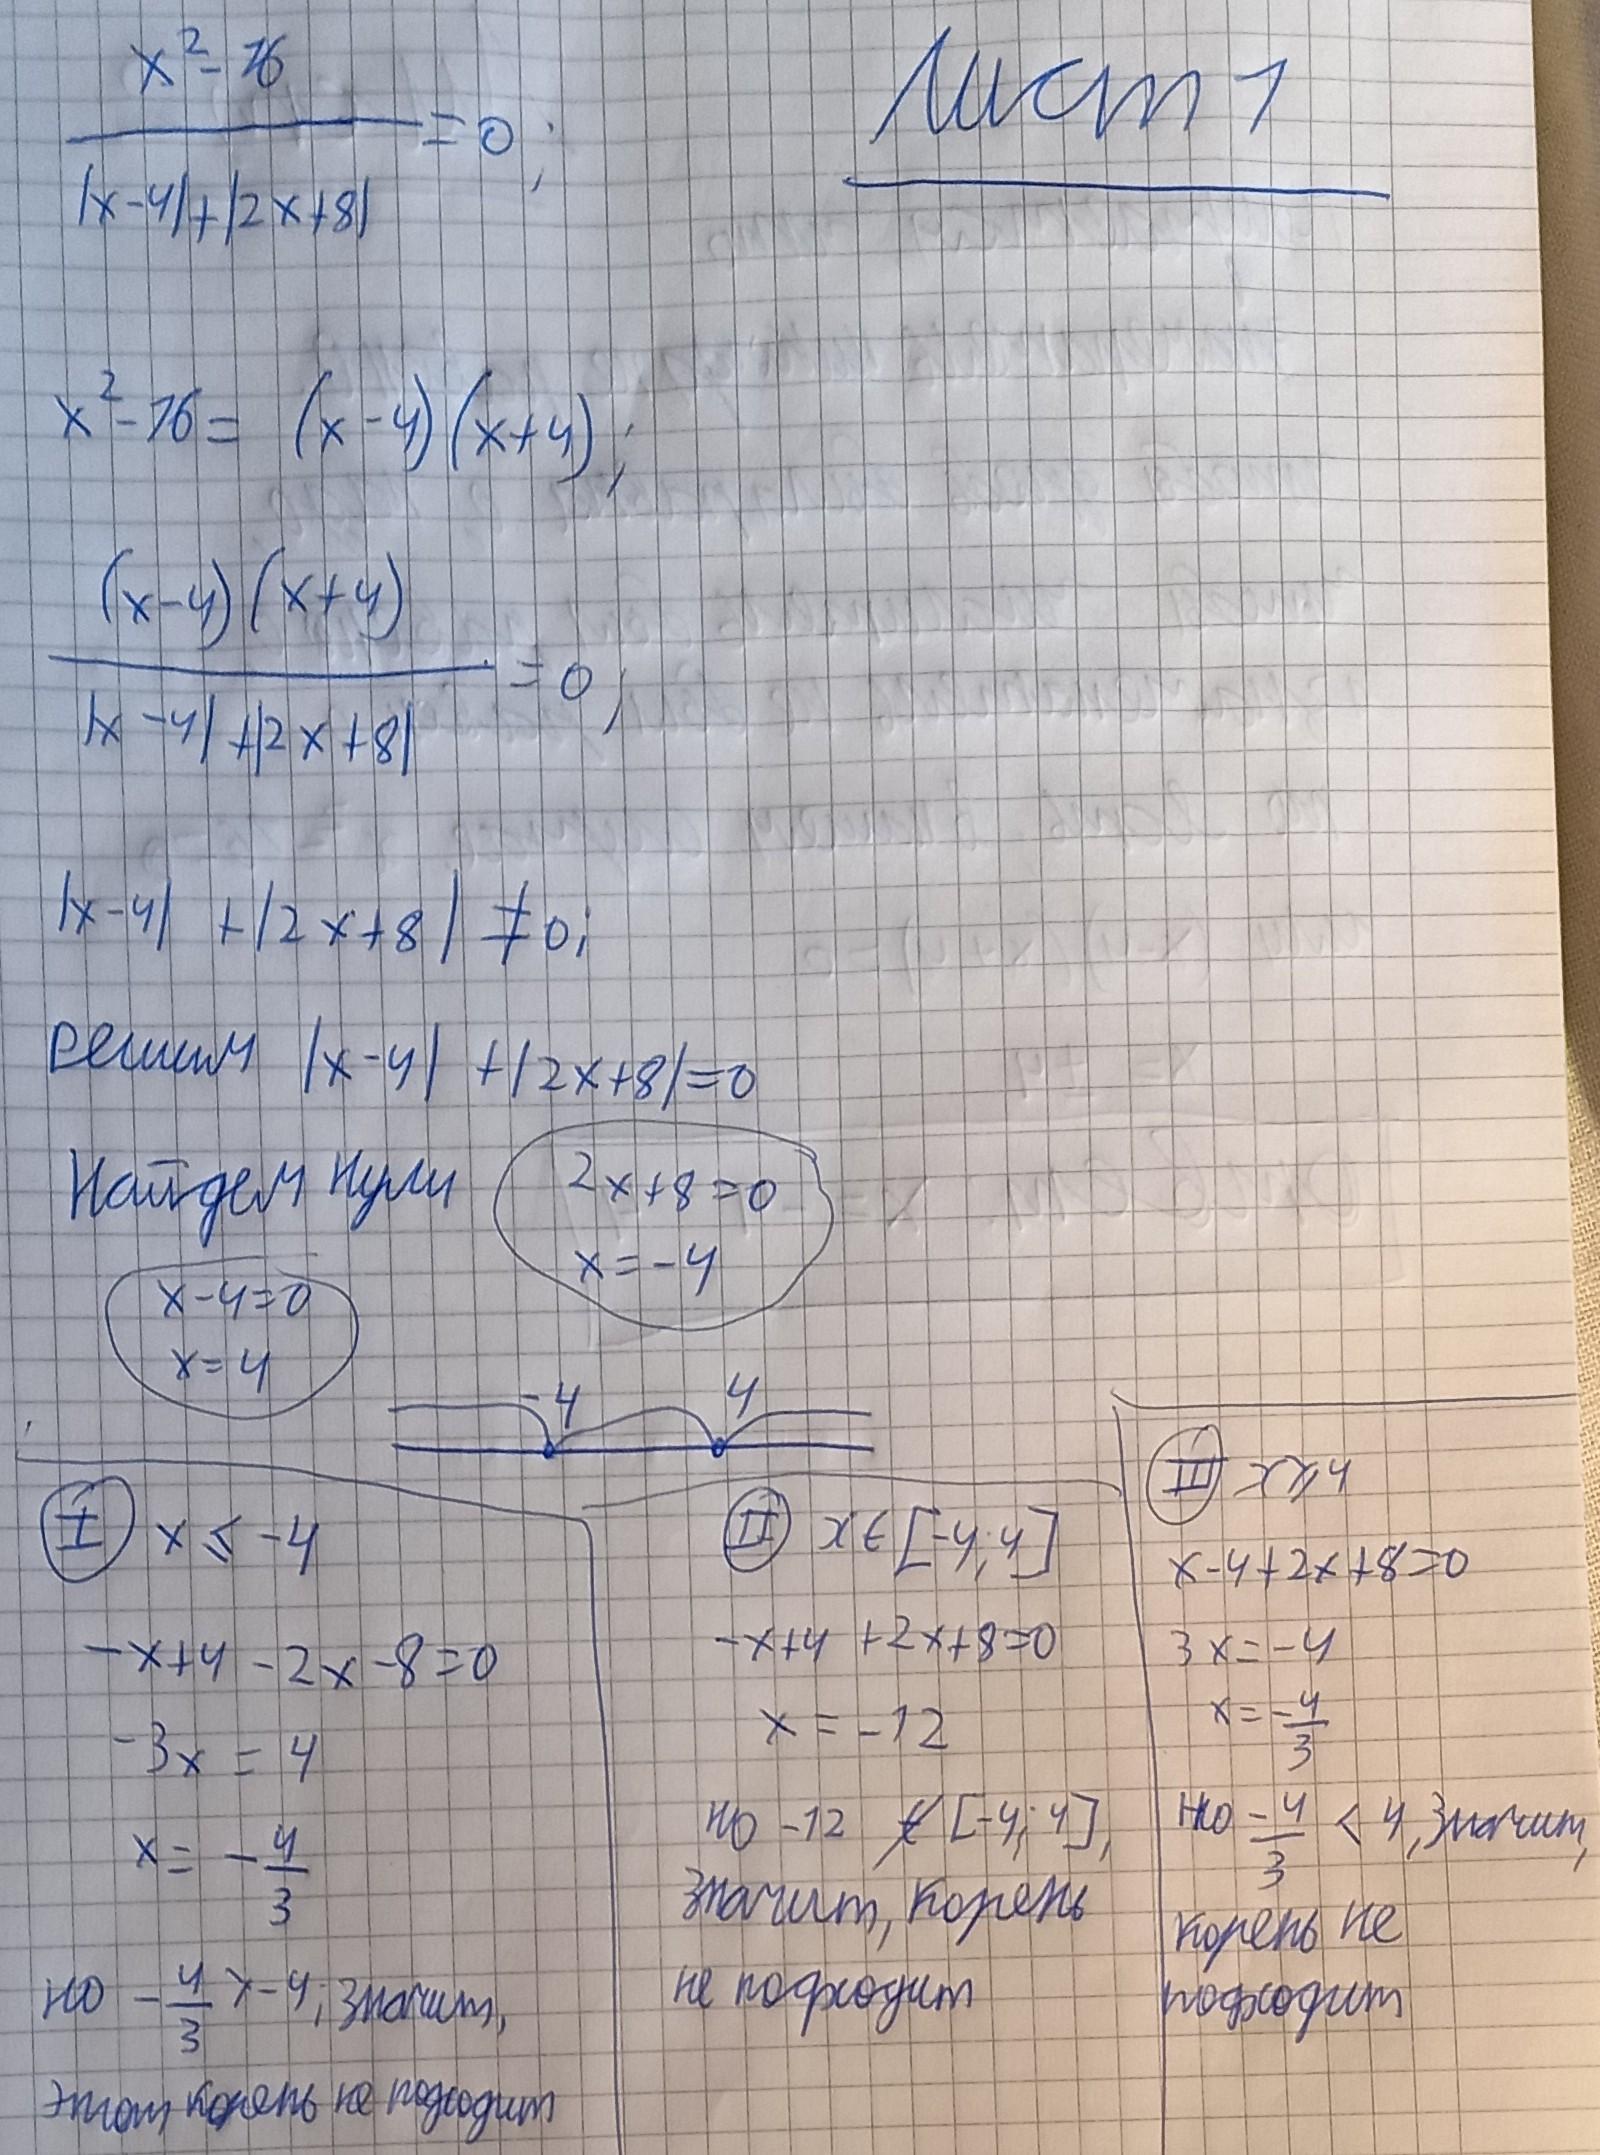 x² - 16 / |x-4| + |2x+8| = 0;
Лист 1
x² - 16 = (x-4)(x+4);
(x-4)(x+4) / |x-4| + |2x+8| = 0;
|x-4| + |2x+8| ≠ 0;
Решим |x-4| + |2x+8| = 0
Найдем нули
2x+8=0
x=-4
x-4=0
x=4
-4 4
I x ≤ -4
-x+4-2x-8=0
-3x = 4
x = -4/3
но -4/3 > -4; значит,
этот корень не подходит
II x ∈ [-4; 4]
-x+4+2x+8=0
x = -12
но -12 ∉ [-4; 4],
значит, корень
не подходит
III x ≥ 4
x-4+2x+8=0
3x = -4
x = -4/3
но -4/3 < 4, значит,
корень не
подходит